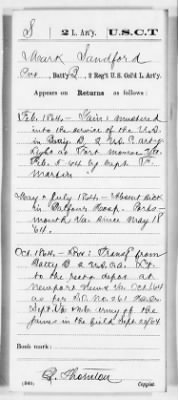 S 2 L. Art'y. U.S.C.T
Mark Sandford
Pvt., Batty B, 2 Reg't U.S. Col'd L. Art'y.
Appears on Returns as follows:
Feb. 1864 – Gain: mustered
into the service of the U.S.
in Batty B, 2 U.S.C. Arty
Light at Fort Monroe Va.
Feb. 5 64 by Capt.
May & July 1864 – Absent sick
in Hosp. Ports-
mouth Va. since May 18
64.
Oct. 1864 – Loss: Transf from
Batty B 2 U.S.C.A. Lt
to the rects depot at
Newport News Va Oct 64
as per S.O. No. 261 Hdqrs.
Dept. Va & N.C. army of the
James in the field Sept 29/64
Book mark:
(546)
Thornton
Copyist.